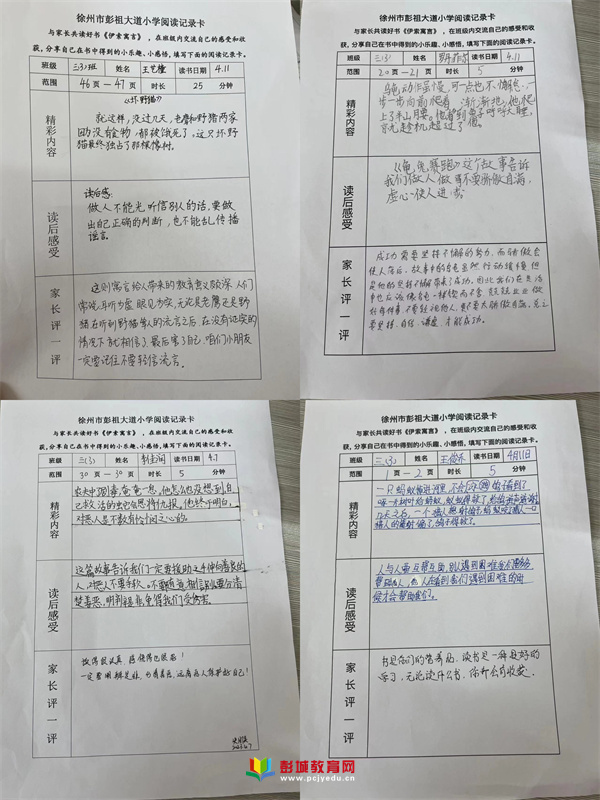 徐州市彭祖大道小学阅读记录卡
与家长共读好书《伊索寓言》，在班级内交流自己的感受和收
获，分享自己在书中得到的小乐趣、小感悟，填写下面的阅读记录卡。
班级 三(3)班 姓名 王艺橦 读书日期 4.11
范围 46页—47页 时长 25 分钟
精彩内容
《坏野猫》
就这样，没过几天，老鹰和野猪两家
因为没食物，都被饿死了，这只坏野
猫最终独占了那棵橡树。
读后感受
读后感：
做人不能光听信别人的话，要做
出自己正确的判断，也不能乱传播
谣言。
家长评一评
这则寓言给人带来的教育意义颇深，人们
常说耳听为虚，眼见为实，无论是老鹰还是野
猪在听到野猫等人的流言之后，在没有证实的
情况下就相信了，最后害了自己，咱们小朋友
一定要记住不要轻信流言。
徐州市彭祖大道小学阅读记录卡
与家长共读好书《伊索寓言》，在班级内交流自己的感受和收
获，分享自己在书中得到的小乐趣、小感悟，填写下面的阅读记录卡。
班级 三(3) 姓名 读书日期 4.11
范围 20页—21页 时长 5 分钟
精彩内容
龟动作虽慢，可一点也不懈怠，一
步一步向前爬着，渐渐地，他爬
上了半山腰。他看到兔子呼呼大睡，
就趁机超过了他。
读后感受
《龟兔赛跑》这个故事告诉
我们做人做事不要骄傲自满，
虚心使人进步。
家长评一评
成功需要坚持不懈的努力，而骄傲会
使人落后，故事中的乌龟虽然行动缓慢，但
是他的坚持不懈带来了成功，因此我们在生活
中也应该像乌龟一样锲而不舍，兢兢业业做
好每件事，不要轻视他人，更不要太骄傲自满，总之
要坚持、自信、谦虚，才能成功。
徐州市彭祖大道小学阅读记录卡
与家长共读好书《伊索寓言》，在班级内交流自己的感受和收
获，分享自己在书中得到的小乐趣、小感悟，填写下面的阅读记录卡。
班级 三(3) 姓名 读书日期 4.7
范围 30页—30页 时长 5 分钟
精彩内容
农夫中毒毒，奄奄一息，他怎么也没想到自
己救活的蛇会恩将仇报，他终于明白，
对恶人是不敢有怜悯之心的。
读后感受
这篇故事告诉我们一定要援助之手伸向善良的
人，对恶人不要手软。不随意相信别人，要分清
楚善恶，明判是非，免得我们受伤害。
家长评一评
读得很认真，感悟得也很好！
一定要明辨是非，分清善恶，远离恶人保护好自己！
徐州市彭祖大道小学阅读记录卡
与家长共读好书《伊索寓言》，在班级内交流自己的感受和收
获，分享自己在书中得到的小乐趣、小感悟，填写下面的阅读记录卡。
班级 三(3) 姓名 王俊乔 读书日期 4月11日
范围 页—2页 时长 5 分钟
精彩内容
一只蚂蚁
读后感受
人与人要互帮互助，别人遇到困难
帮助别人，
候才会帮助我们。
家长评一评
书是我们的营养品，读书是一种良好的
学习，无论读什么书，你都会有收获。
彭城教育网
www.pcjyedu.cn